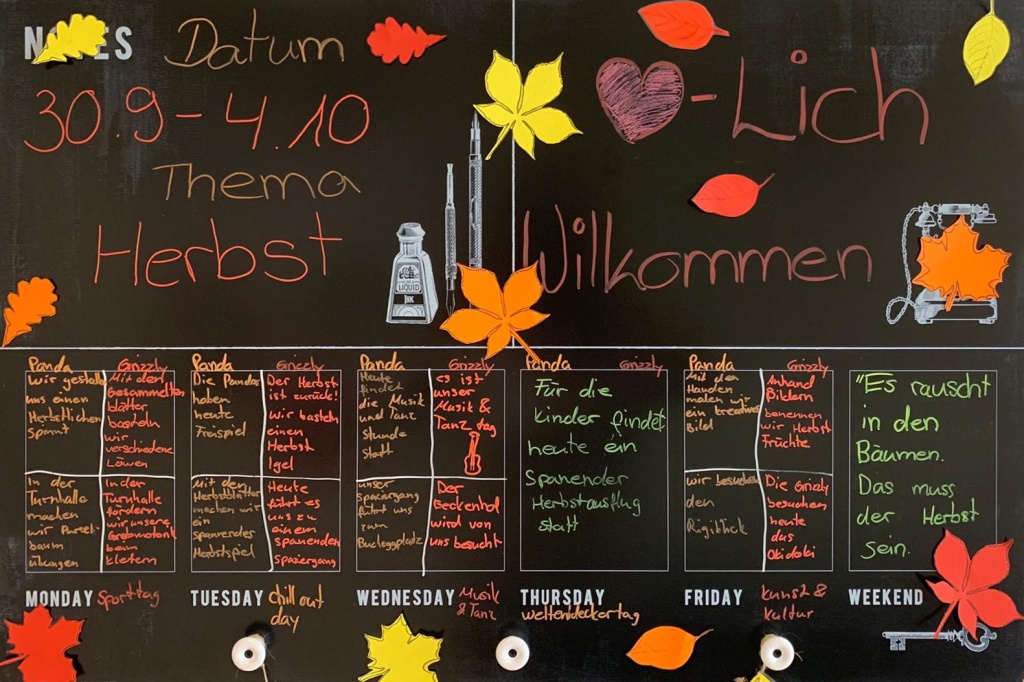 NOTES
Datum
30.9 - 4.10
Thema
Herbst
LIQUID
INK
-Lich
Willkommen
Panda
wir gestalt
uns einen
Herbstlichen
Grizzly
Mit den
Gesammelten
blätter
basteln
wir
verschiedene
Löwen
In der
Turnhalle
machen
wir
übungen
In der
Turnhalle
fördern
wir unsere
Grobmotorik
beim
klettern
MONDAY Sporttag
Panda
Die Pandas
haben
heute
Freispiel
Grizzly
Der Herbst
ist zurück!
wir basteln
einen
Herbst
Igel
Mit den
Herbstblätter
machen wir
ein
spannendes
Herbstspiel
Heute
führt es
uns zu
einem
spanenden
spaziergang
TUESDAY chill out
day
Panda
Heute
findet
die Musik
und Tanz
stunde
statt
Grizzly
es ist
unser
Musik &
Tanz tag
unser
spaziergang
führt uns
zum
Der
Geckenhof
wird von
uns besucht
WEDNESDAY Musik
& Tanz
Panda
Grizzly
Für die
kinder findet
heute ein
Spanender
Herbstausflug
statt
THURSDAY
weltentdeckertag
Panda
Mit den
Handen
malen wir
ein kreatives
Bild
Grizzly
Anhand
Bildern
benennen
wir Herbst
Früchte
wir besuchen
den
Rigiblick
Die Grizzly
besuchen
heute
das
Okidoki
FRIDAY kunst &
kultur
"Es rauscht
in den
Bäumen.
Das muss
der Herbst
sein.
WEEKEND